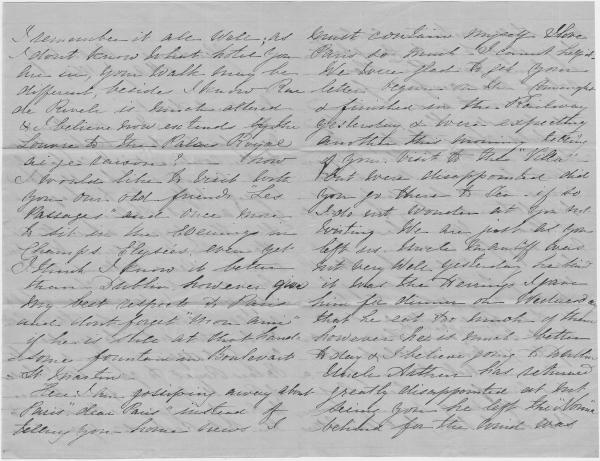 I remember it all well; as
I dont know what hotel you
are in, your walk may be
different, besides I know Rue
de Rivoli is much altered
& I believe now extends by the
Louvre to the Palais Royal
ai-je raison? — how
I would like to visit with
you our old friends "Les
Passages" and once more
to sit in the Evenings in
Champs Elysées, even yet
I think I know it better
than Dublin however give
my best respects to Paris
and dont forget "mon ami"
if he is still at that hand-
some fountain Boulevart
St. Martin
Here I am gossiping away about
Paris "dear Paris" instead of
telling you home news I
must contain myself I love
Paris so much I cannot help it.
We were glad to get your
letter begun on the
& finished in the Railway
yesterday & were expecting
another this morning telling
of your visit to the "Villa"
but were disappointed did
you go there to see if so
I do not wonder at you not
writing We are just as you
left us Uncle was
not very well yesterday he said
it was the Herrings I gave
him for dinner on Wednesday
that he eat too much of them
however he is much better
to day & I believe going to
Uncle Arthur has returned
greatly disappointed at not
seeing you he left the
behind for the wind was